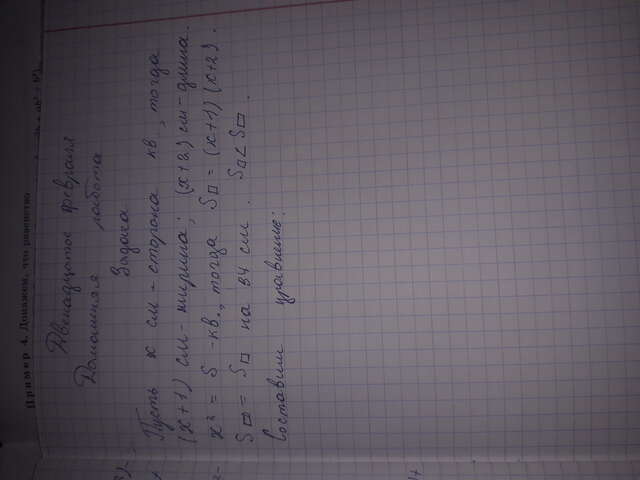 Пример 4. Докажем, что равенство
Двенадцатое февраля
Домашняя работа
Задача
Пусть x см - сторона кв., тогда
(x+1) см - ширина; (x+2) см - длина.
x² = S - кв., тогда S▭ = (x+1)(x+2).
S▭ = S□ на 84 см. S□ < S▭.
Составим уравнение: